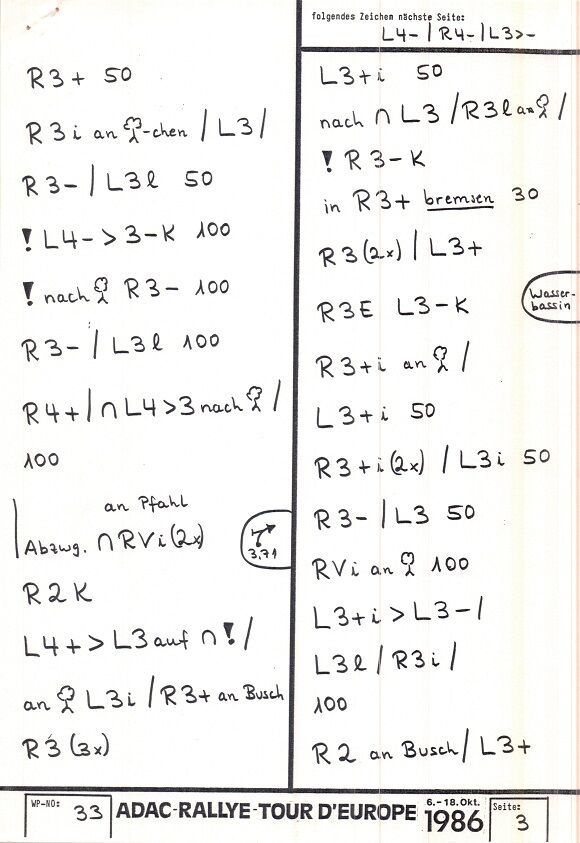 R3+ 50
R3i an -chen / L3 /
R3- / L3l 50
! L4- > 3-K 100
! nach R3- 100
R3- / L3l 100
R4+ / ∩ L4>3 nach /
100
an Pfahl
Abzwg. ∩ RVi (2x)
3,71
R2K
L4+ > L3 auf ∩ ! /
an L3i / R3+ an Busch
R3 (3x)
folgendes Zeichen nächste Seite:
L4- / R4- / L3>-
L3+i 50
nach ∩ L3 / R3l an /
! R3-K
in R3+ bremsen 30
R3 (2x) / L3+
Wasser-
bassin
R3E L3-K
R3+i an /
L3+i 50
R3+i (2x) / L3i 50
R3- / L3 50
RVi an 100
L3+i > L3- /
L3l / R3i /
100
R2 an Busch / L3+
WP-NO: 33
ADAC-RALLYE-TOUR D'EUROPE
6.-18.Okt.
1986
Seite: 3